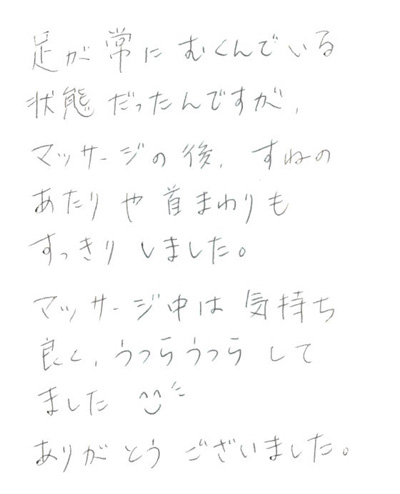 足が常に むくんでいる
状態だったんですが、
マッサージの後、すねの
あたりや首まわりも
すっきりしました。
マッサージ中は気持ち
良く、うつらうつらして
ました
ありがとうございました。